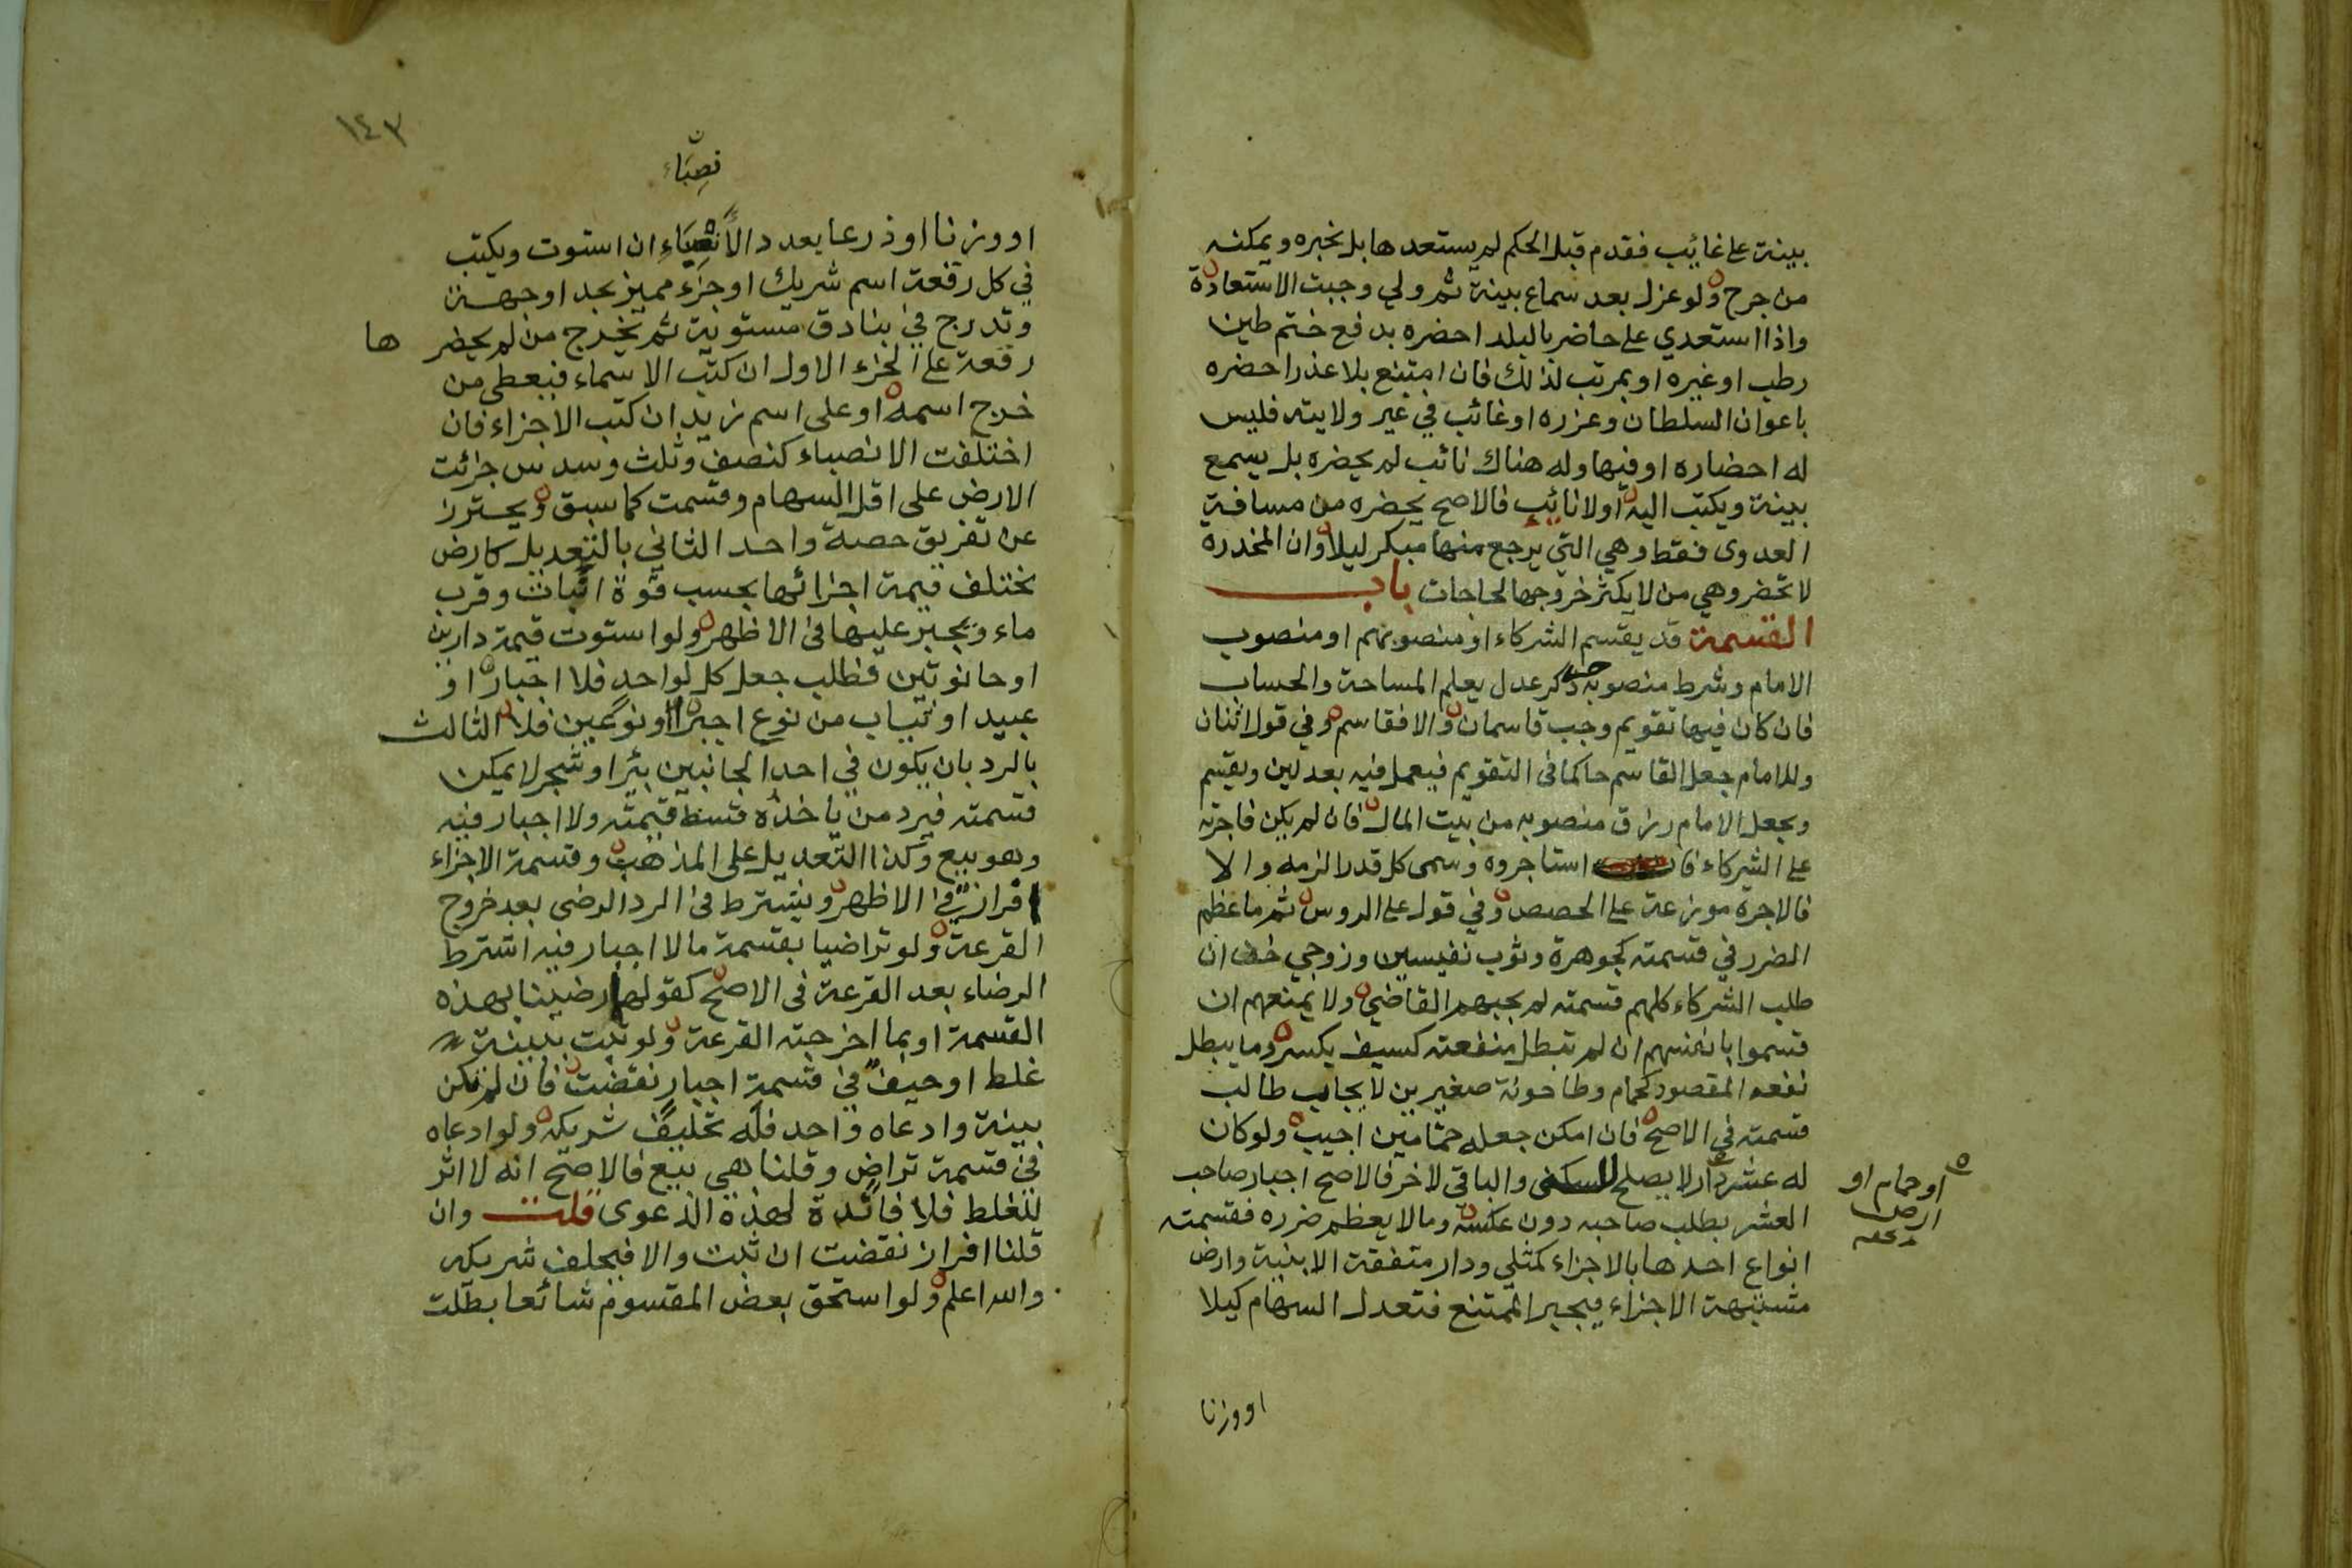 بينة على غائب فقدم قبل الحكم لم يستعدها بل يخبره ويمكنه
من جرح ولو عزل بعد سماع بينة ثم ولي وجبت الاستعادة
واذا استعدي على حاضر بالبلد احضره بدفع ختم طين
رطب او غيره او بمرتب لذلك فان امتنع بلا عذر احضره
باعوان السلطان وعزره او غائب في غير ولايته فليس
له احضاره او فيها وله هناك نائب لم يحضره بل يسمع
بينة ويكتب اليه او لا نائب فالاصح يحضره من مسافة
العدوى فقط وهي التي يرجع منها مبكر ليلا وان المخدرة
لا تحضر وهي من لا يكثر خروجها لحاجات باب
القسمة قد يقسم الشركاء او منصوبهم او منصوب
الامام وشرط منصوبه ذكر حر عدل يعلم المساحة والحساب
فان كان فيها تقويم وجب قاسمان والا فقاسم وفي قول اثنان
وللامام جعل القاسم حاكما في التقويم فيعمل فيه بعدلين ويقسم
ويجعل الامام رزق منصوبه من بيت المال فان لم يكن فاجرته
على الشركاء فان استاجروه وسمى كل قدرا لزمه والا
فالاجرة موزعة على الحصص وفي قول على الروس ثم ما عظم
الضرر في قسمته كجوهرة وثوب نفيسين وزوجي خف ان
طلب الشركاء كلهم قسمته لم يجبهم القاضي ولا يمنعهم ان
قسموا بانفسهم ان لم تبطل منفعته كسيف يكسر وما يبطل
نفعه المقصود كحمام وطاحونة صغيرين لا يجاب طالب
قسمته في الاصح فان امكن جعله حمامين اجيب ولو كان
له عشر دار لا يصلح للسكنى والباقي لاخر فالاصح اجبار صاحب
العشر بطلب صاحبه دون عكسه وما لا يعظم ضرره فقسمته
انواع احدها بالاجزاء كمثلي ودار متفقة الابنية وارض
مشتبهة الاجزاء فيجبر الممتنع فتعدل السهام كيلا
او حمام او
ارض
او وزنا
١٤٣
نصباء
او وزنا او ذرعا بعدد الأنصباء ان استوت ويكتب
في كل رقعة اسم شريك او جزء مميز بحد او جهة
وتدرج في بنادق مستوية ثم يخرج من لم يحضر ها
رقعة على الجزء الاول ان كتب الاسماء فيعطى من
خرج اسمه او على اسم زيد ان كتب الاجزاء فان
اختلفت الانصباء كنصف وثلث وسدس جزئت
الارض على اقل السهام وقسمت كما سبق ويحترز
عن تفريق حصة واحد الثاني بالتعديل كارض
تختلف قيمة اجزائها بحسب قوة اثبات وقرب
ماء ويجبر عليها في الاظهر ولو استوت قيمة دارين
او حانوتين فطلب جعل كل لواحد فلا اجبار او
عبيد او ثياب من نوع اجبر او نوعين فلا الثالث
بالرد بان يكون في احد الجانبين بئر او شجر لا يمكن
قسمته فيرد من ياخذه قسط قيمته ولا اجبار فيه
وهو بيع وكذا التعديل على المذهب وقسمة الاجزاء
افراز في الاظهر ويشترط في الرد الرضى بعد خروج
القرعة ولو تراضيا بقسمة ما لا اجبار فيه اشترط
الرضاء بعد القرعة في الاصح كقولهما رضينا بهذه
القسمة او بما اخرجته القرعة ولو ثبت ببينة
غلط او حيف في قسمة اجبار نقضت فان لم تكن
بينة وادعاه واحد فله تحليف شريكه ولو ادعاه
في قسمة تراض وقلنا هي بيع فالاصح انه لا اثر
للغلط فلا فائدة لهذه الدعوى قلت وان
قلنا افراز نقضت ان ثبت والا فيحلف شريكه
والله اعلم ولو استحق بعض المقسوم شائعا بطلت